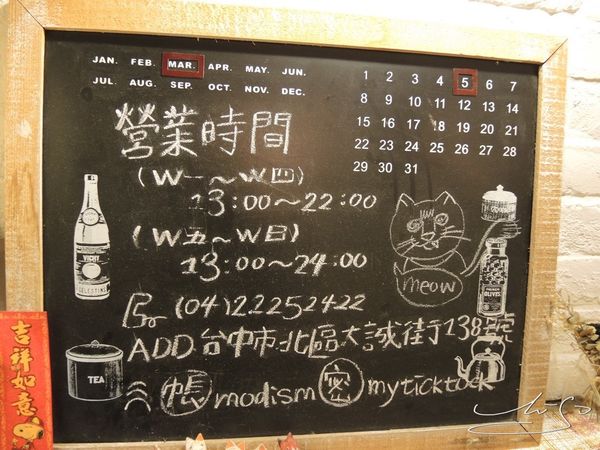 JAN. FEB. MAR. APR. MAY. JUN.
JUL. AUG. SEP. OCT. NOV. DEC.
1 2 3 4 5 6 7
8 9 10 11 12 13 14
15 16 17 18 19 20 21
22 23 24 25 26 27 28
29 30 31
營業時間
(W一~W四)
13:00~22:00
(W五~W日)
13:00~24:00
meow
(04)22252422
ADD 台中市北區大誠街138號
帳 modism 密 myticktock
VICHY
CELESTINS
OLIVES
TEA
吉祥如意